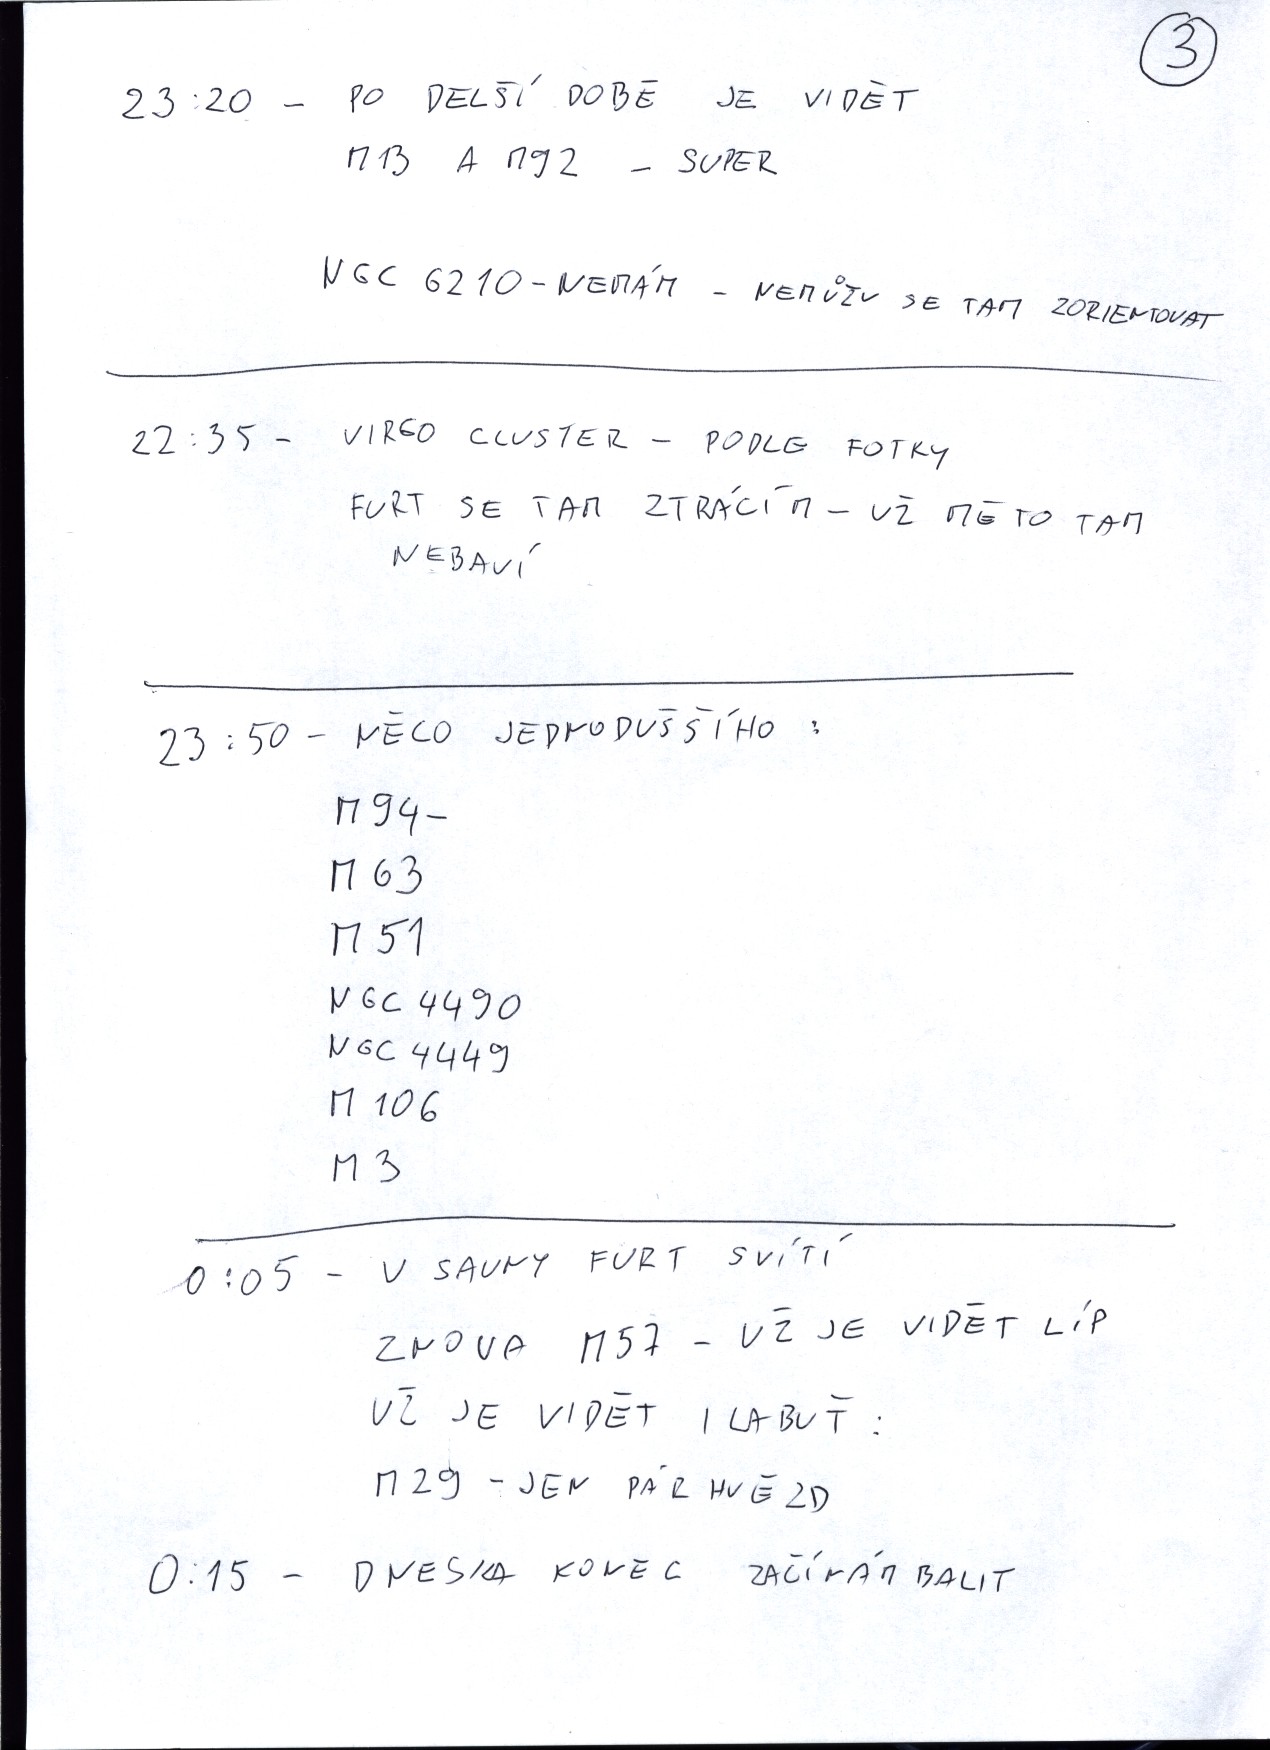 3
23:20 - PO DELŠÍ DOBĚ JE VIDĚT
M13 A M92 - SUPER
NGC 6210 - NEMÁM - NEMŮŽU SE TAM ZORIENTOVAT
22:35 - VIRGO CLUSTER - PODLE FOTKY
FURT SE TAM ZTRÁCÍM - UŽ MĚ TO TAM
NEBAVÍ
23:50 - NĚCO JEDNODUŠŠÍHO :
M94 -
M63
M51
NGC 4490
NGC 4449
M 106
M 3
0:05 - U SAUNY FURT SVÍTÍ
ZNOVA M57 - UŽ JE VIDĚT LÍP
UŽ JE VIDĚT I LABUŤ :
M29 - JEN PÁR HVĚZD
0:15 - DNESKA KONEC ZAČÍNÁM BALIT